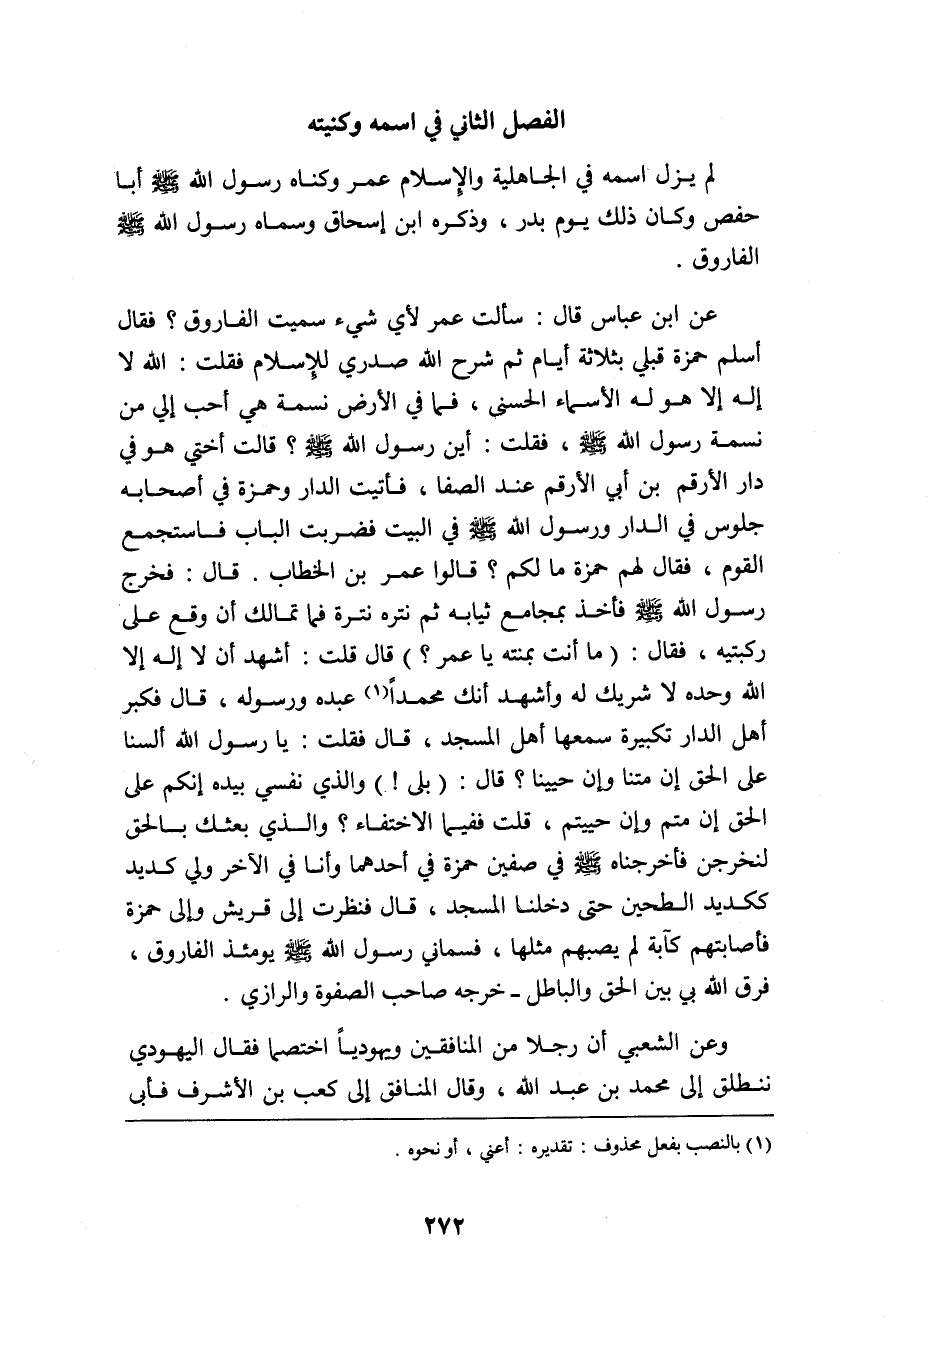 الفصل الثاني في اسمه وكنيته
لم يزل اسمه في الجاهلية والإسلام عمر وكناه رسول الله ﷺ أبا
حفص وكان ذلك يوم بدر ، وذكره ابن إسحاق وسماه رسول الله ﷺ
الفاروق .
عن ابن عباس قال : سألت عمر لأي شيء سميت الفاروق ؟ فقال
أسلم حمزة قبلي بثلاثة أيام ثم شرح الله صدري للإسلام فقلت : الله لا
إله إلا هو له الأسماء الحسنى ، فما في الأرض نسمة هي أحب إلي من
نسمة رسول الله ﷺ ، فقلت : أين رسول الله ﷺ ؟ قالت أختي هو في
دار الأرقم بن أبي الأرقم عند الصفا ، فأتيت الدار وحمزة في أصحابه
جلوس في الدار ورسول الله ﷺ في البيت فضربت الباب فاستجمع
القوم ، فقال لهم حمزة ما لكم ؟ قالوا عمر بن الخطاب . قال : فخرج
رسول الله ﷺ فأخذ بمجامع ثيابه ثم نتره نترة فما تمالك أن وقع على
ركبتيه ، فقال : ( ما أنت بمنته يا عمر ؟ ) قال قلت : أشهد أن لا إله إلا
الله وحده لا شريك له وأشهد أنك محمداً(١) عبده ورسوله ، قال فكبر
أهل الدار تكبيرة سمعها أهل المسجد ، قال فقلت : يا رسول الله ألسنا
على الحق إن متنا وإن حيينا ؟ قال : ( بلى ! ) والذي نفسي بيده إنكم على
الحق إن متم وإن حييتم ، قلت ففيما الاختفاء ؟ والذي بعثك بالحق
لنخرجن فأخرجناه ﷺ في صفين حمزة في أحدهما وأنا في الآخر ولي كديد
ككديد الطحين حتى دخلنا المسجد ، قال فنظرت إلى قريش وإلى حمزة
فأصابتهم كآبة لم يصبهم مثلها ، فسماني رسول الله ﷺ يومئذ الفاروق ،
فرق الله بي بين الحق والباطل - خرجه صاحب الصفوة والرازي .
وعن الشعبي أن رجلا من المنافقين ويهودياً اختصما فقال اليهودي
ننطلق إلى محمد بن عبد الله ، وقال المنافق إلى كعب بن الأشرف فأبى
(١) بالنصب بفعل محذوف : تقديره : أعني ، أو نحوه .
٢٧٢